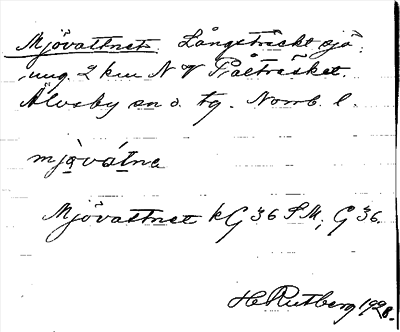 Mjövattnet. Långsträckt sjö,
ung. 2 km N V Pålträsket.
Älvsby sn o. tg. Norrb. l.
mjö̀vátnɐ
Mjövattnet kG 36 SM, G 36.
H Rutberg 1928.